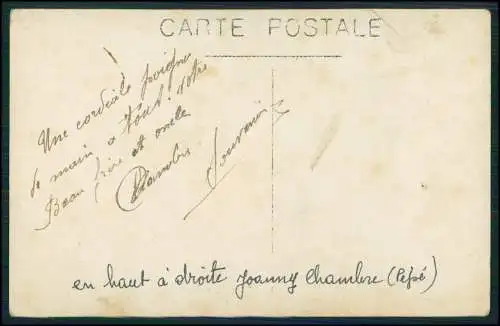 CARTE POSTALE
Une cordiale poigne
de main a tous! Votre
Beau frère et oncle
Chambre
Souvenir
en haut à droite Joanny Chambre (Pépé)